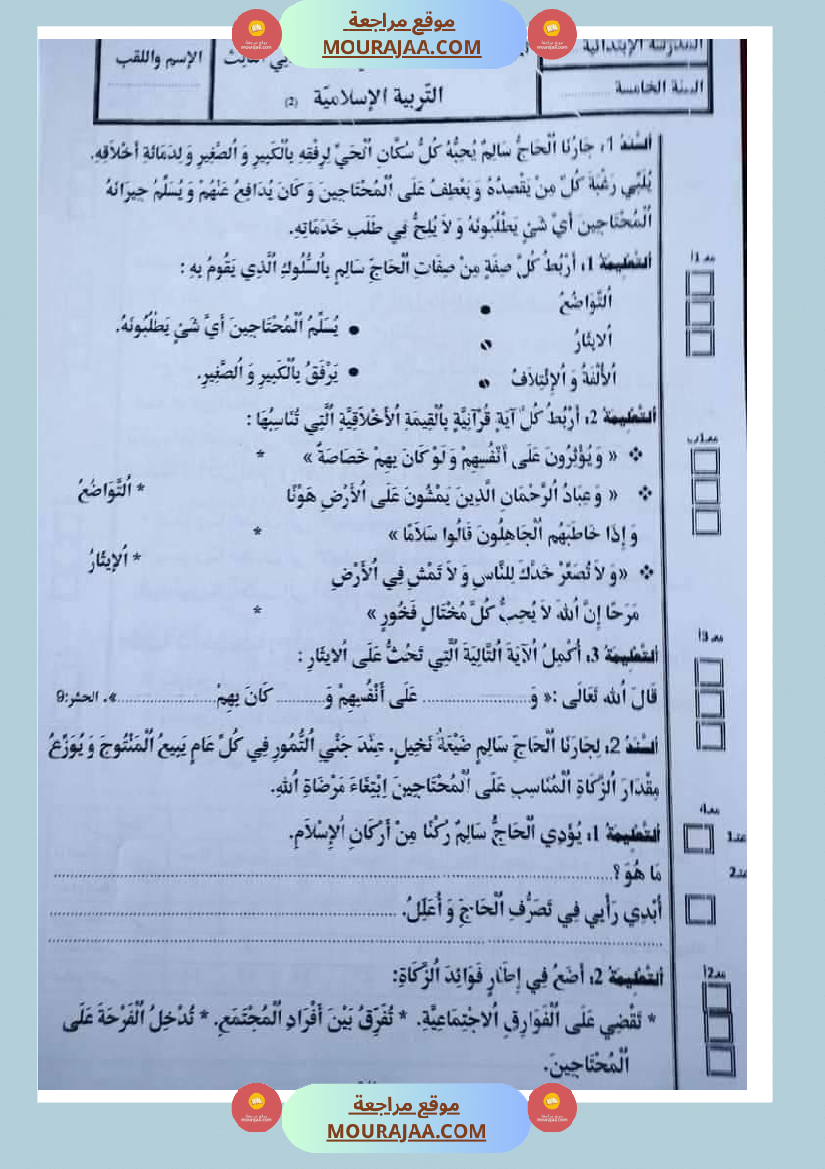 موقع مراجعة
MOURAJAA.COM
المدرسة الابتدائية
الإسم واللقب
السنة الخامسة ..........
التّربية الإسلاميّة (2)
السّند 1: جَارُنَا اَلْحَاجُّ سَالِمٌ يُحِبُّهُ كُلُّ سُكَّانِ اَلْحَيِّ لِرِفْقِهِ بِالْكَبِيرِ وَ اَلصَّغِيرِ وَ لِدَمَاثَةِ أَخْلَاقِهِ.
يُلَبِّي رَغْبَةَ كُلِّ مِنْ يَقْصِدُهُ وَ يَعْطِفُ عَلَى اَلْمُحْتَاجِينَ وَ كَانَ يُدَافِعُ عَنْهُمْ وَ يُسَلِّمُ جِيرَانَهُ
اَلْمُحْتَاجِينَ أَيَّ شَيْءٍ يَطْلُبُونَهُ وَ لَا يُلِحُّ فِي طَلَبِ خَدَمَاتِهِ.
التّعليمة 1: أَرْبُطُ كُلَّ صِفَةٍ مِنْ صِفَاتِ اَلْحَاجِّ سَالِمٍ بِاُلسُّلُوكِ اُلَّذِي يَقُومُ بِهِ :
مع1أ
اُلتَّوَاضُعُ
يُسَلِّمُ اُلْمُحْتَاجِينَ أَيَّ شَيْءٍ يَطْلُبُونَهُ.
اُلْاِيثَارُ
يَرْفَقُ بِالْكَبِيرِ وَ اُلصَّغِيرِ.
اُلْأُلْفَةُ وَ اُلْإِئْتِلَافُ
التّعليمة 2: أَرْبُطُ كُلَّ آيَةٍ قُرْآنِيَّةٍ بِالْقِيمَةِ اُلْأَخْلَاقِيَّةِ اُلَّتِي تُنَاسِبُهَا :
مع1ب
❖ « وَ يُؤْثِرُونَ عَلَى أَنْفُسِهِمْ وَ لَوْ كَانَ بِهِمْ خَصَاصَةٌ » *
❖ « وَ عِبَادُ اُلرَّحْمَانِ الَّذِينَ يَمْشُونَ عَلَى اُلْأَرْضِ هَوْنًا
* اُلتَّوَاضُعُ
وَ إِذَا خَاطَبَهُم اُلْجَاهِلُونَ قَالُوا سَلَامًا » *
* اُلْإِيثَارُ
❖ «وَ لَا تُصَعِّرْ خَدَّكَ لِلنَّاسِ وَ لَا تَمْشِ فِي اُلْأَرْضِ
مَرَحًا إِنَّ اُللهَ لَا يُحِبُّ كُلَّ مُخْتَالٍ فَخُورٍ » *
التّعليمة 3: أُكْمِلُ اُلْآيَةَ اُلتَّالِيَةَ اُلَّتِي تَحُثُّ عَلَى اُلْاِيثَارِ :
مع3أ
قَالَ اُللهُ تَعَالَى :« وَ.................... عَلَى أَنْفُسِهِمْ وَ.......... كَانَ بِهِمْ....................». الحشر:9
السّند 2: لِجَارِنَا اَلْحَاجِّ سَالِمٍ ضَيْعَةُ نَخِيلٍ. عِنْدَ جَنْيِ اُلتُّمُورِ فِي كُلِّ عَامٍ يَبِيعُ اُلْمَنْتُوجَ وَ يُوَزِّعُ
مِقْدَارَ اُلزَّكَاةِ اُلْمُنَاسِبِ عَلَى اُلْمُحْتَاجِينَ اِبْتِغَاءَ مَرْضَاةِ اُللهِ.
مع4
التّعليمة 1: يُؤَدِّي اَلْحَاجُّ سَالِمٌ رُكْنًا مِنْ أَرْكَانِ اُلْإِسْلَامِ.
مَا هُوَ ؟..............................
أُبْدِي رَأْيِي فِي تَصَرُّفِ اُلْحَاجِّ وَ أُعَلِّلُ. ..............................
..............................
التّعليمة 2: أَضَعُ فِي إِطَارٍ فَوَائِدَ اُلزَّكَاةِ:
مع2أ
* تَقْضِي عَلَى اُلْفَوَارِقِ اُلْاجْتِمَاعِيَّةِ. * تُفَرِّقُ بَيْنَ أَفْرَادِ اُلْمُجْتَمَعِ. * تُدْخِلُ اُلْفَرْحَةَ عَلَى
اُلْمُحْتَاجِينَ.
موقع مراجعة
MOURAJAA.COM